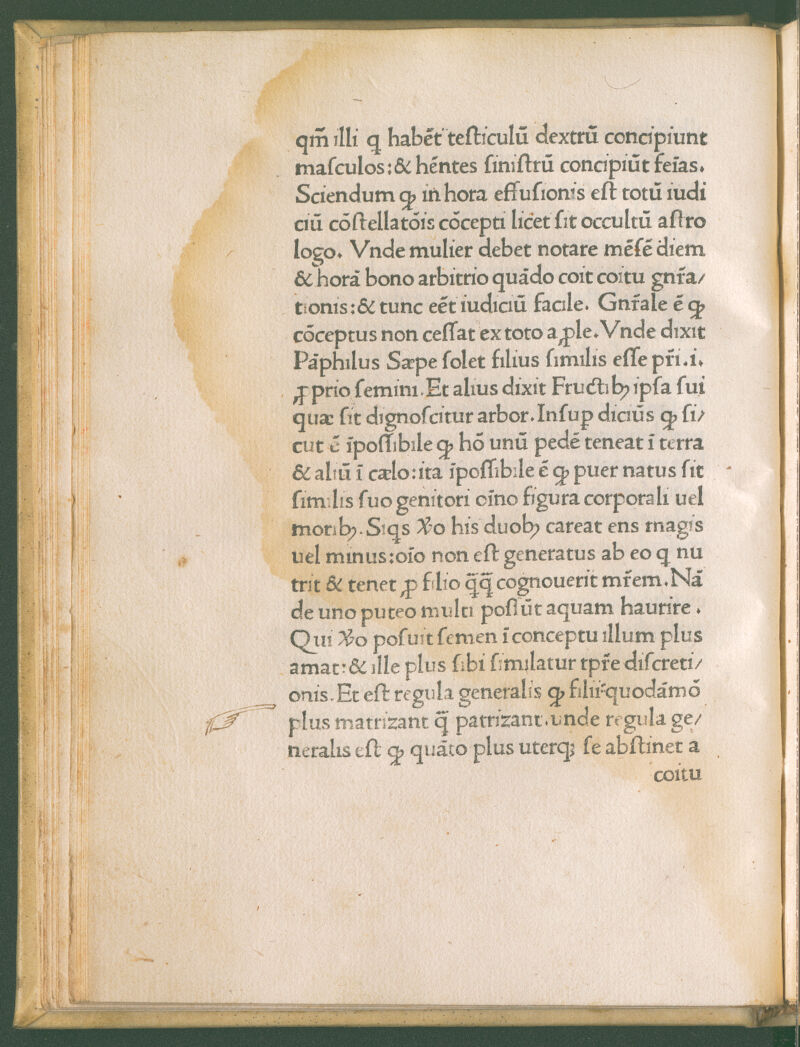 qm̄ illi q habét teſticulū dextrū concipiunt
maſculos:& héntes ſiniſtrū concipiūt feīas.
Sciendum ꝙ in hora effuſionis eſt totū iudi
ciū cōſtellatōis cōcepti licet ſit occultū aſtro
logo. Vnde mulier debet notare mēſē diem
& horā bono arbitrio quādo coit coitu gnr̄a/
tionis:& tunc eēt iudiciū facile. Gnr̄ale ē ꝙ
cōceptus non ceſſat ex toto a ꝓle. Vnde dixit
Pāphilus Sæpe ſolet filius ſimilis eſſe pr̄i.i.
ꝓprio ſemini. Et alius dixit Fructibꝫ ipſa ſui
quæ ſit dignoſcitur arbor. Inſup diciūs ꝙ ſi/
cut ē īpoſſibile ꝙ hō unū pedē teneat ī terra
& aliū ī cælo:ita īpoſſibile ē ꝙ puer natus ſit
ſimilis ſuo genitori oīno figura corporali uel
moribꝫ. Siqs Xo his duobꝫ careat ens magis
uel minus:oīo non eſt generatus ab eo q nu
trit & tenet ꝓ filio q̄q̄ cognouerit mr̄em. Nā
de uno puteo multi poſſūt aquam haurire .
Qui Xo poſuit ſemen ī conceptu illum plus
amat:& ille plus ſibi ſimilatur tpr̄e diſcreti/
onis. Et eſt regula generalis ꝙ filii quodāmō
plus matrizant q̄ patrizant. unde regula ge/
neralis eſt ꝙ quāto plus uterqꝫ ſe abſtinet a
coitu